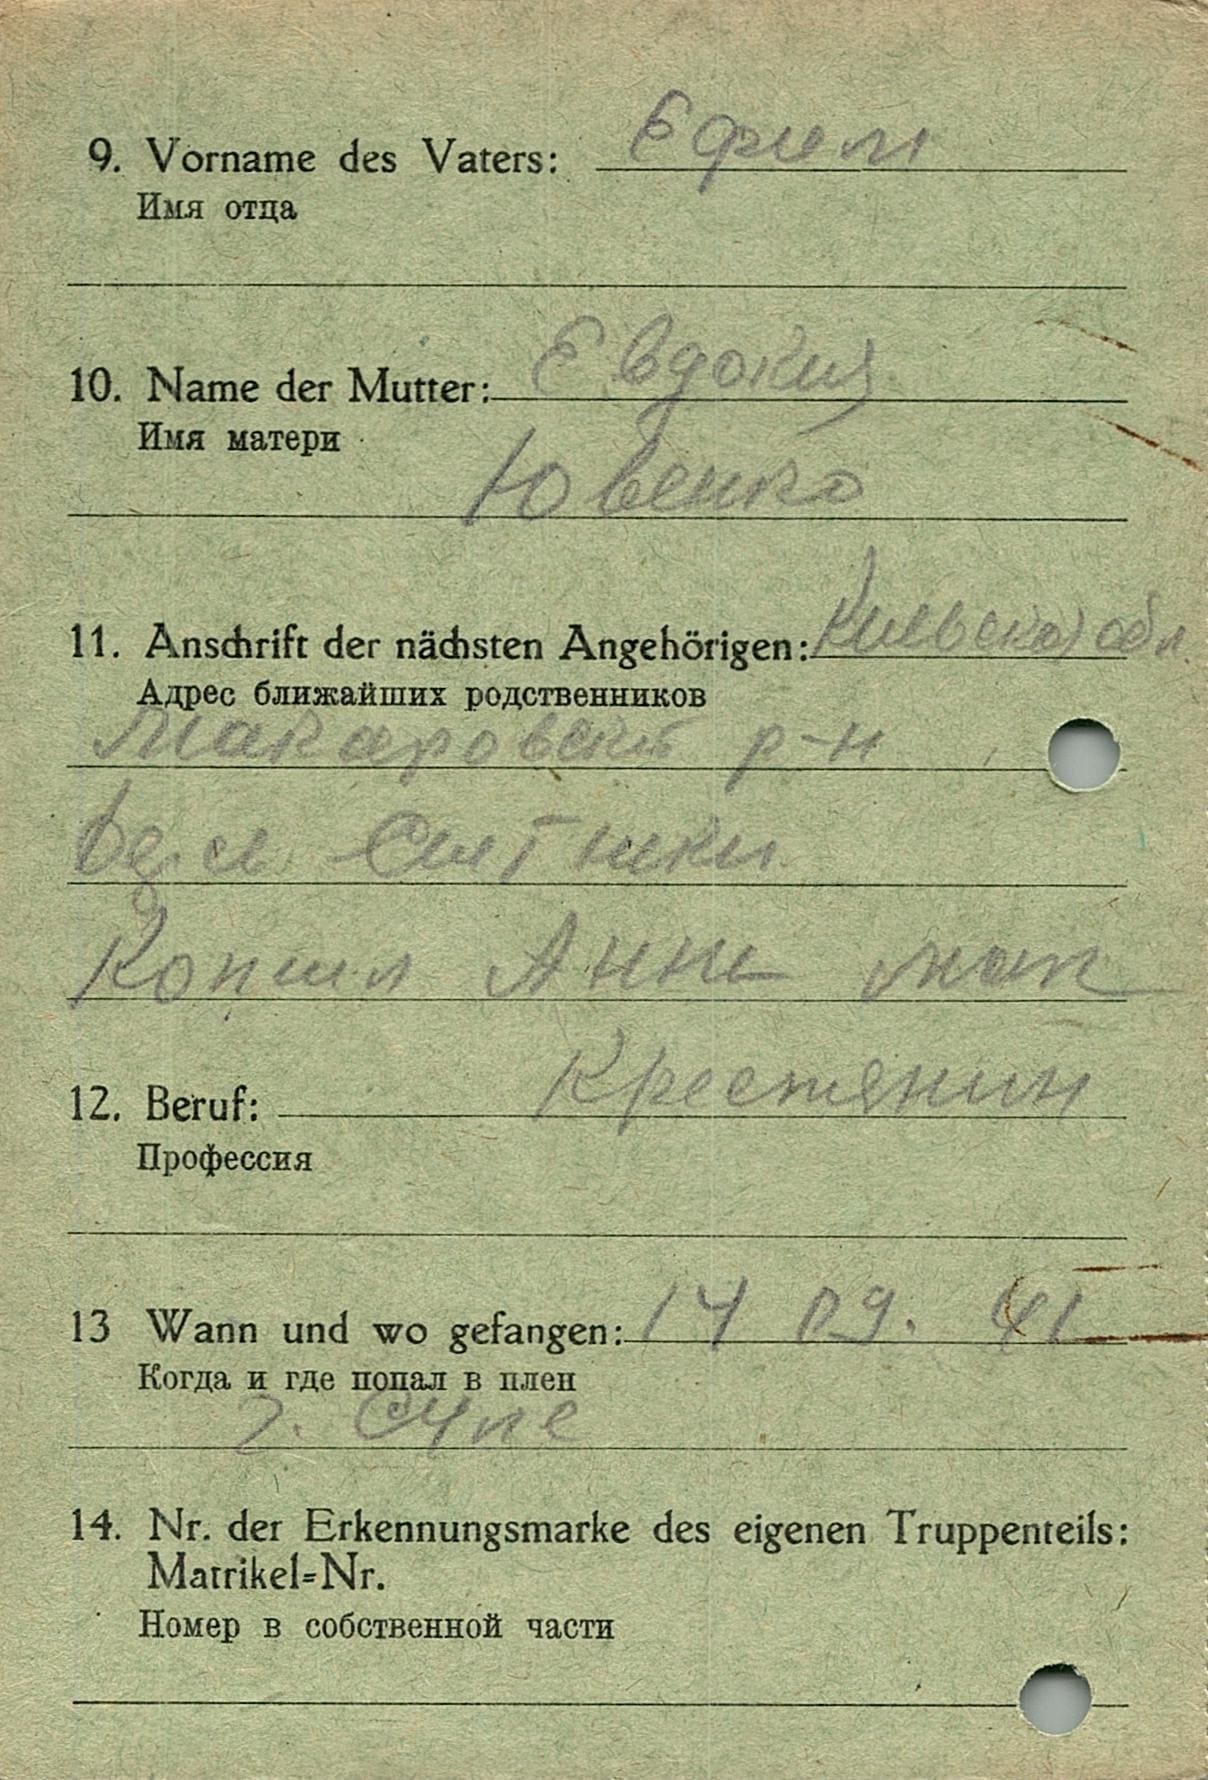 9. Vorname des Vaters: Ефим
Имя отца
10. Name der Mutter: Евдокия
Имя матери
Ювенко
11. Anschrift der nächsten Angehörigen: Киевская обл.
Адрес ближайших родственников
Макаровский р-н
Ситники
Копил Анне
12. Beruf: Крестянин
Профессия
13 Wann und wo gefangen: 14 09. 41
Когда и где попал в плен
14. Nr. der Erkennungsmarke des eigenen Truppenteils:
Matrikel=Nr.
Номер в собственной части